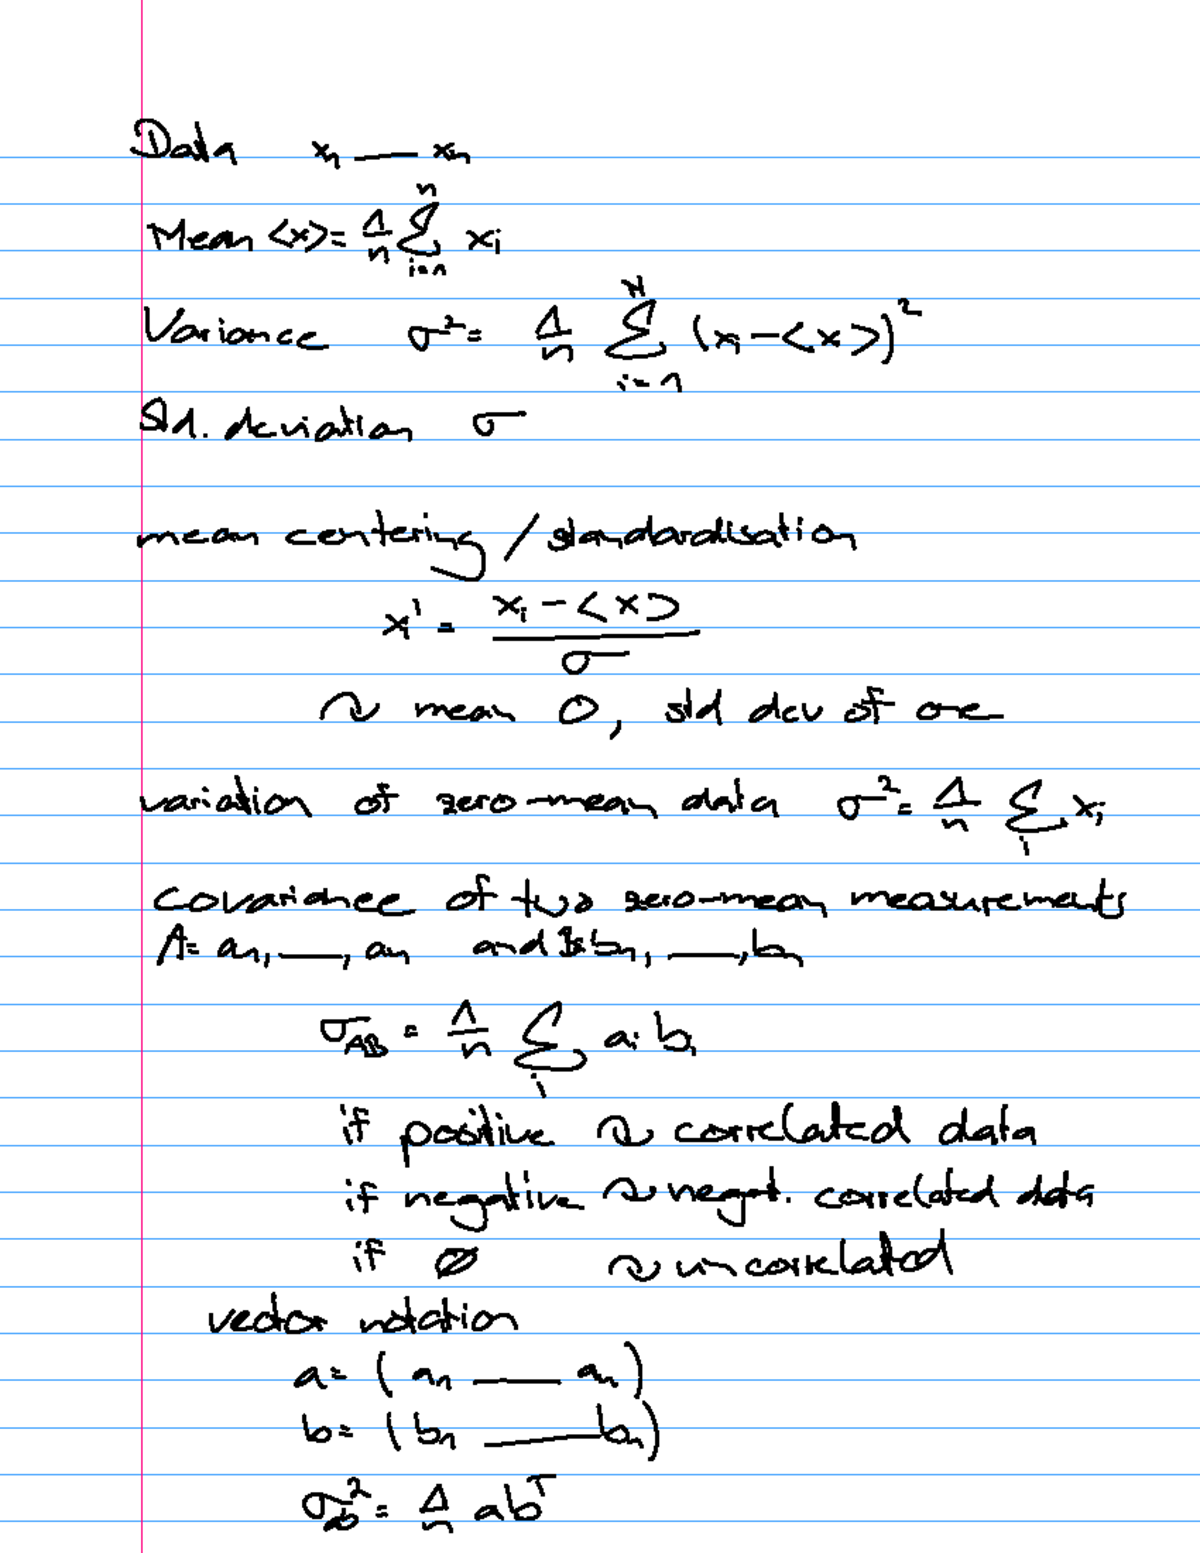 Data x₁ — xₙ
Mean <x> = 1/n Σ_{i=1}^{n} xᵢ
Variance σ² = 1/n Σ_{i=1}^{N} (xᵢ - <x>)²
Std. deviation σ
mean centering / standardisation
xᵢ' = (xᵢ - <x>) / σ
~ mean 0, std dev of one
variation of zero-mean data σ² = 1/n Σ_i xᵢ
covariance of two zero-mean measurements
A = a₁, —, aₙ and B = b₁, —, bₙ
σ_AB = 1/n Σ_i aᵢ bᵢ
if positive ~ correlated data
if negative ~ negat. correlated data
if ∅ ~ uncorrelated
vector notation
a = (a₁ — aₙ)
b = (b₁ — bₙ)
σ_ab² = 1/n abᵀ